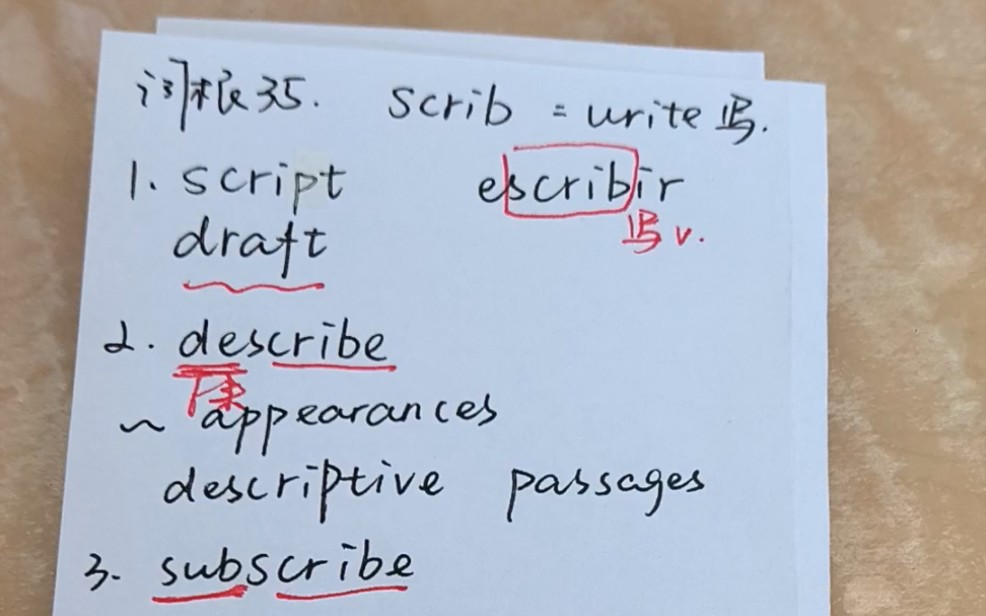 词根35. scrib = write 写.
1. script escribir
写 v.
draft
2. describe
下来
~ appearances
descriptive passages
3. subscribe